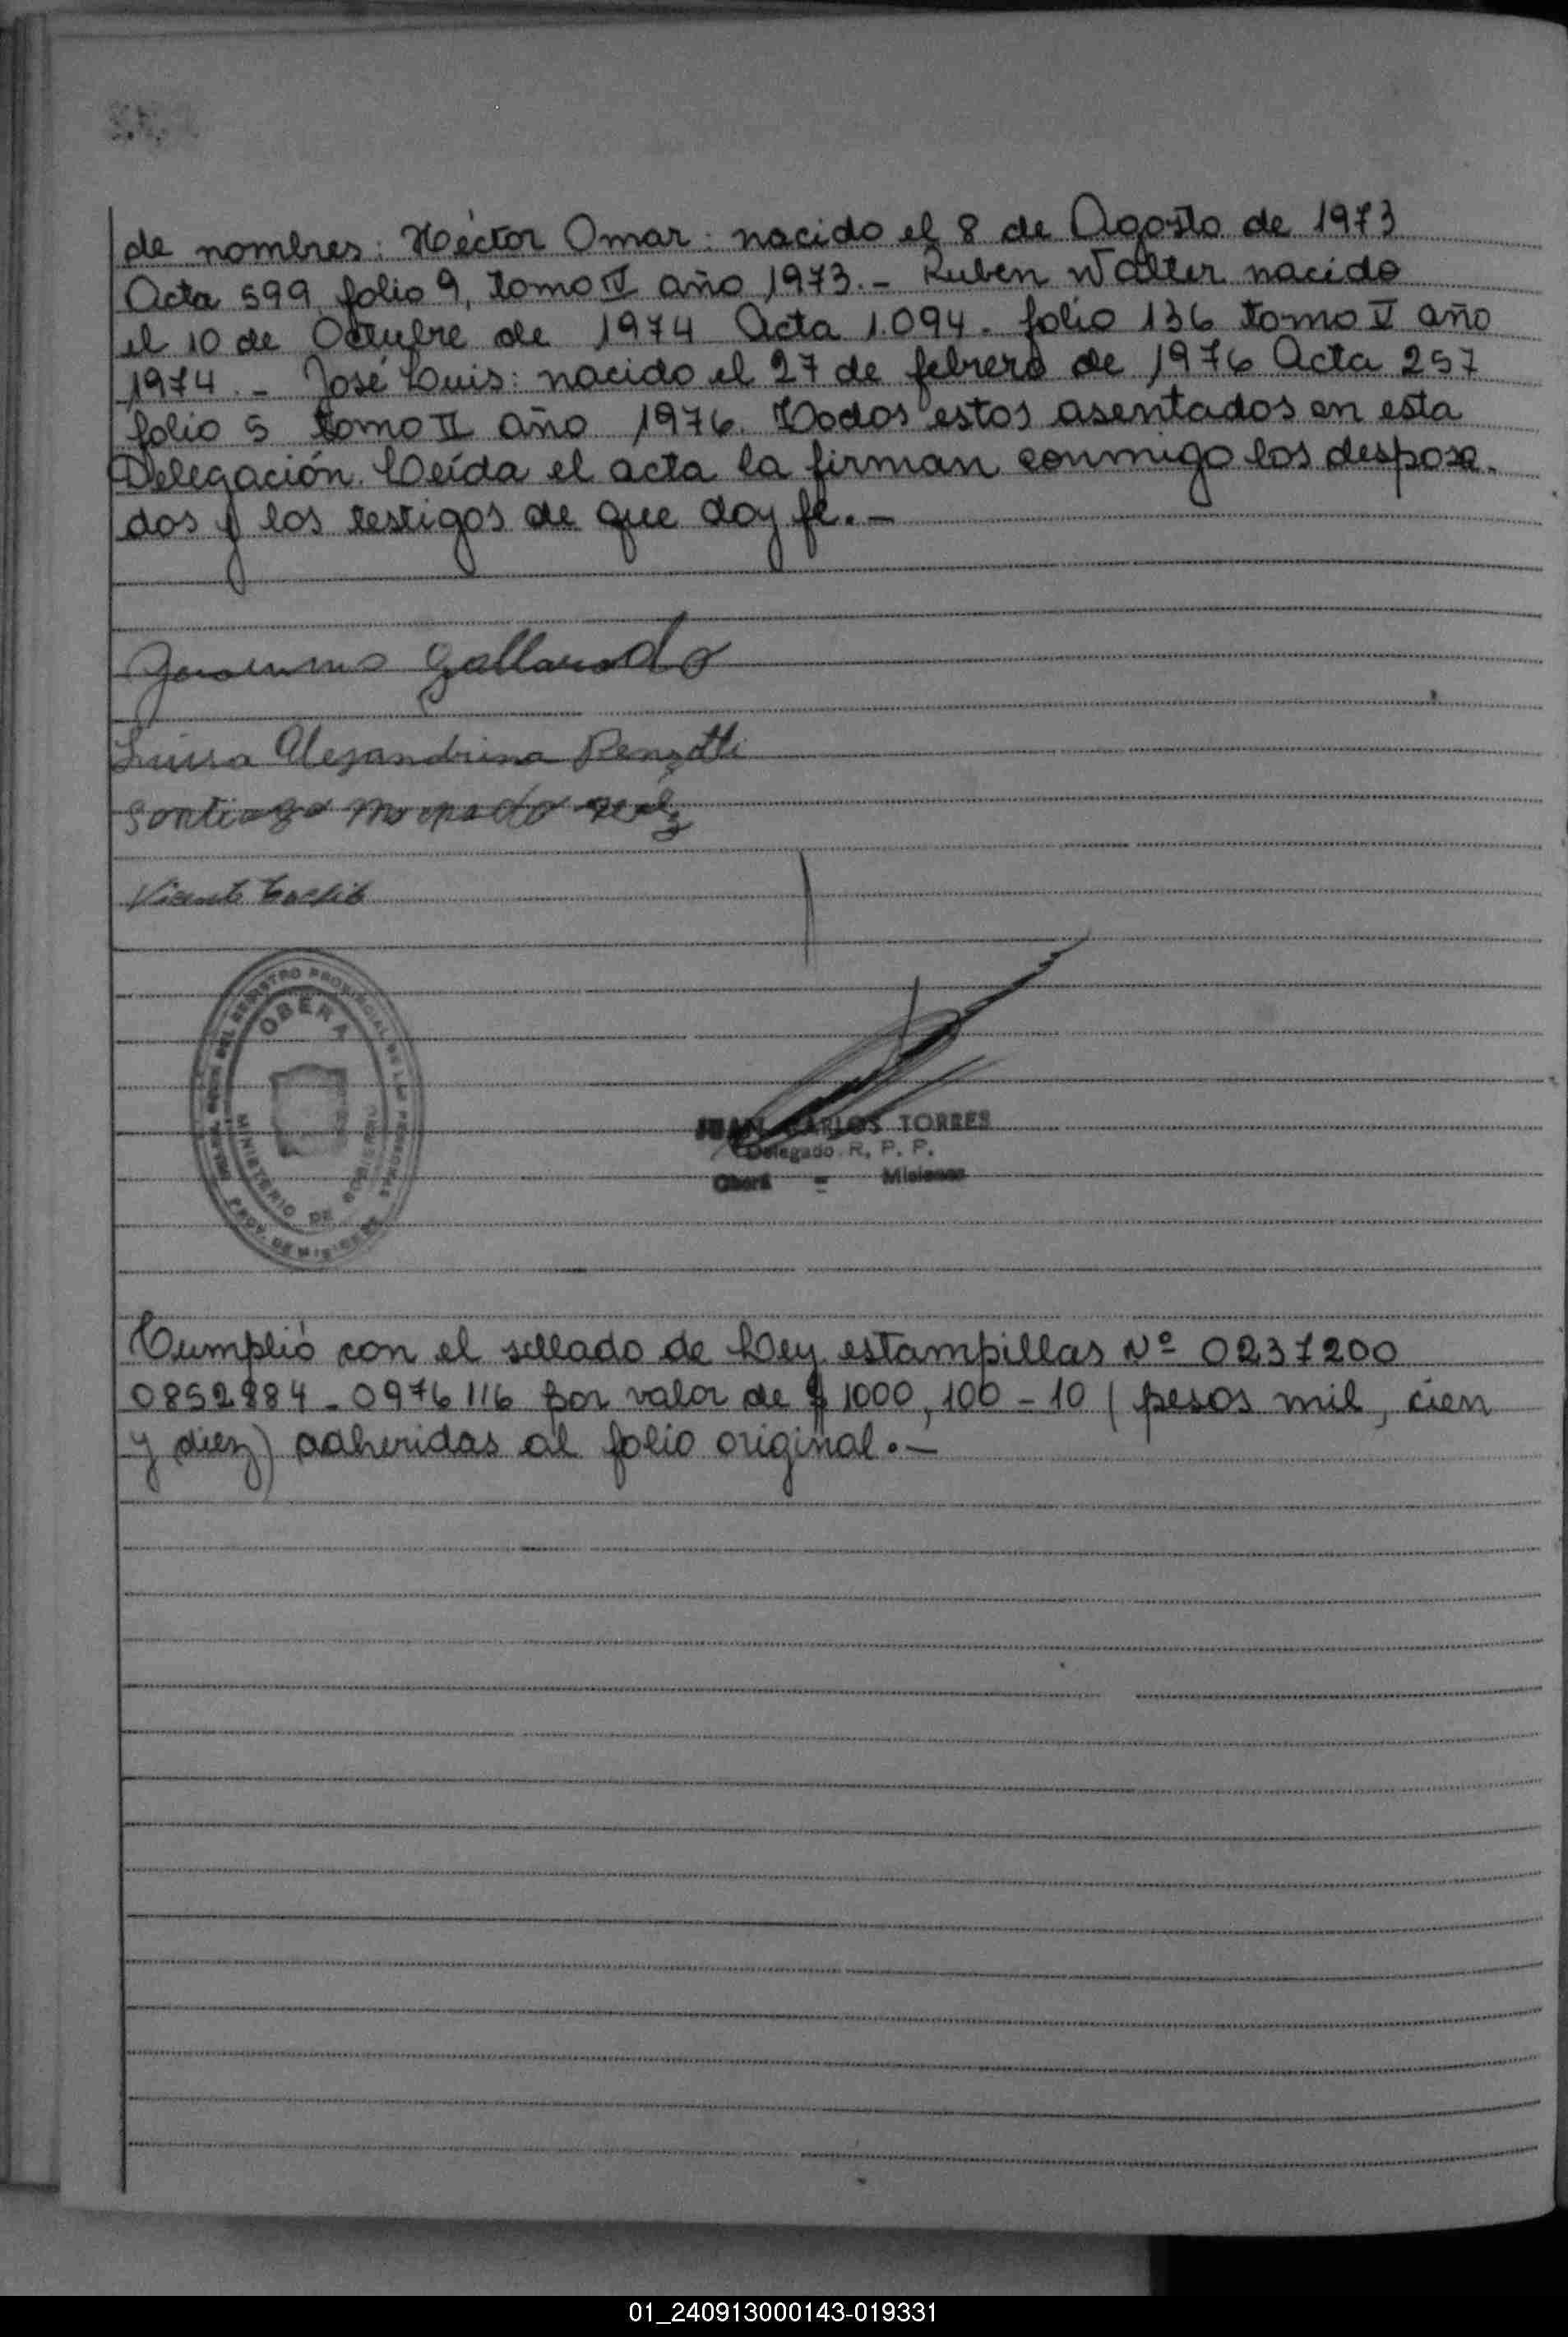 de nombres: Héctor Omar: nacido el 8 de Agosto de 1973
Acta 599, folio 9, tomo IV año 1973.- Ruben Walter nacido
el 10 de Octubre de 1974 Acta 1.094. folio 136 tomo V año
1974.- José Luis: nacido el 27 de febrero de 1976 Acta 257
folio 5 tomo II año 1976. Todos estos asentados en esta
Delegación. Leída el acta la firman conmigo los desposa-
dos y los testigos de que doy fé.-
Gallardo
Luisa Alejandrina
Santiago
Vicente
OBERA
MINISTERIO DE GOBIERNO
PROV. DE MISIONES
JUAN CARLOS TORRES
Delegado R. P. P.
Oberá - Misiones
Cumplió con el sellado de Ley estampillas Nº 0237200
0852984 - 0976116 por valor de $ 1000, 100 - 10 (pesos mil, cien
y diez) adheridas al folio original.-
01_240913000143-019331